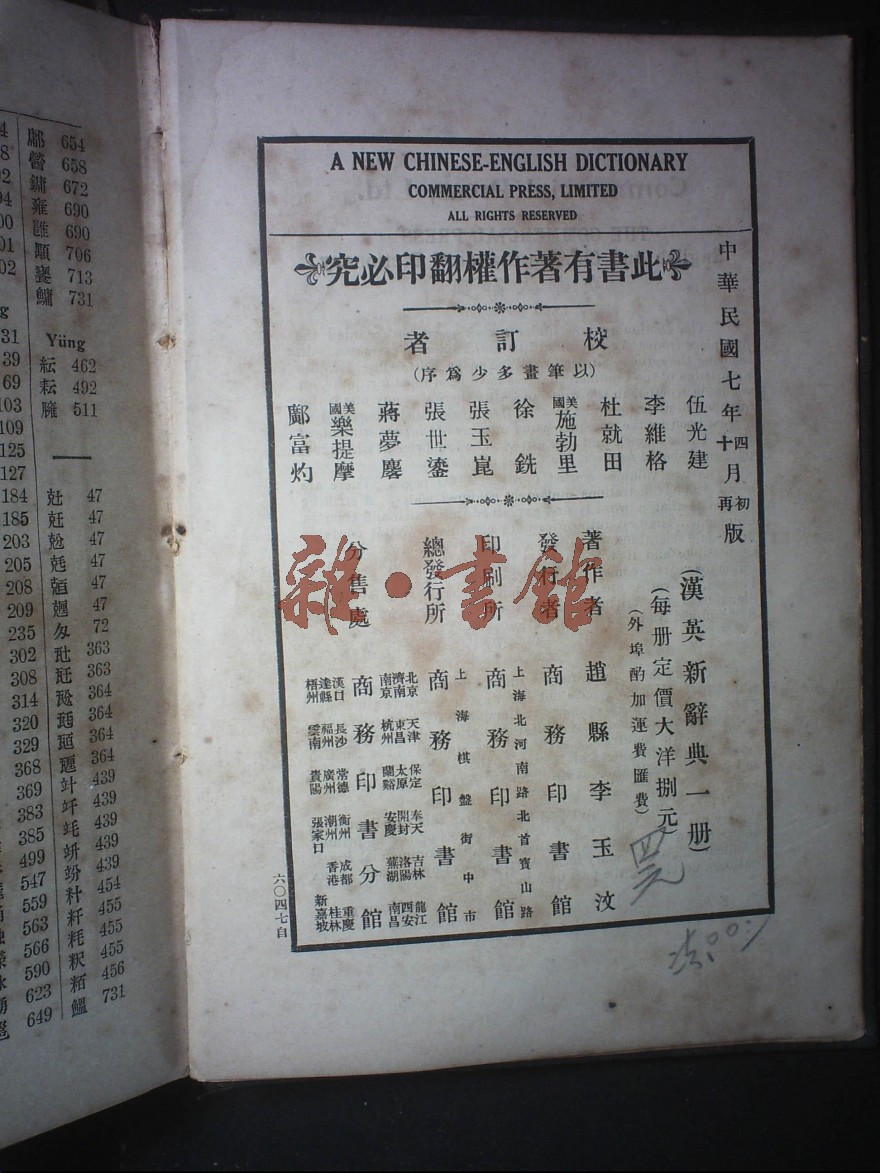 A NEW CHINESE-ENGLISH DICTIONARY
COMMERCIAL PRESS, LIMITED
ALL RIGHTS RESERVED
此書有著作權翻印必究
中華民國七年四月初版
十月再版
校訂者
(以筆畫多少爲序)
伍光建
李維格
杜就田
美國施勃里
徐銑
張玉崑
張世鎏
蔣夢麐
美國樂提摩
鄺富灼
(漢英新辭典一册)
(每册定價大洋捌元)
(外埠酌加運費匯費)
著作者 趙縣李玉汶
發行者 商務印書館
上海北河南路北首寶山路
印刷所 商務印書館
上海棋盤街中市
總發行所 商務印書館
分售處 商務印書分館
北京 天津 保定 奉天 吉林 龍江
濟南 東昌 太原 開封 洛陽 西安
南京 杭州 蘭谿 安慶 蕪湖 南昌
漢口 長沙 常德 衡州 成都 重慶
達縣 福州 廣州 潮州 香港 桂林
梧州 雲南 貴陽 張家口 新嘉坡
六〇四七自
四元
雜·書館
鄘 654
罾 658
鏞 672
雍 690
雝 690
顒 706
饔 713
鱅 731
Yüng
紜 462
耘 492
臃 511
兙 47
兛 47
兝 47
兞 47
兡 47
兣 47
72
瓧 363
瓩 363
瓰 364
瓱 364
瓸 364
瓼 364
竍 439
竏 439
竓 439
竕 439
籵 454
粁 455
粍 455
粎 455
粨 456
鰮 731
31
39
69
103
109
125
127
184
185
203
205
208
209
235
302
308
314
320
329
368
369
383
385
499
547
559
563
566
590
623
649